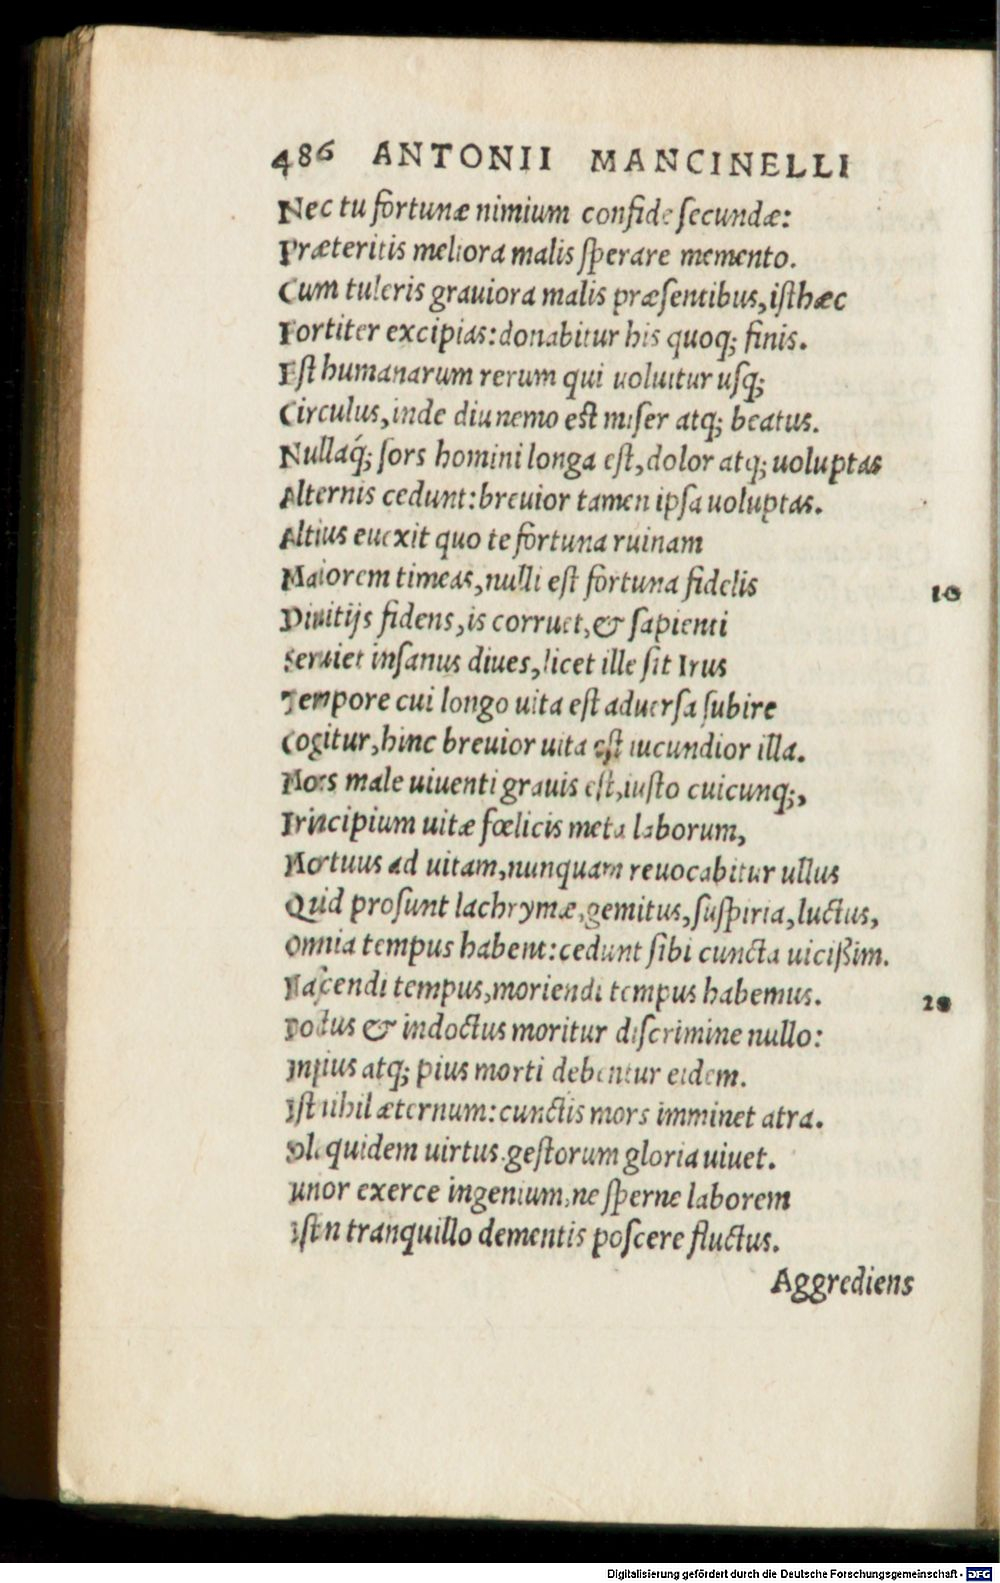 486 ANTONII MANCINELLI
Nec tu fortunæ nimium confide ſecundæ:
Præteritis meliora malis ſperare memento.
Cum tuleris grauiora malis præſentibus, iſthæc
Fortiter excipias: donabitur his quoq; finis.
Eſt humanarum rerum qui uoluitur uſq;
Circulus, inde diu nemo eſt miſer atq; beatus.
Nullaq́; ſors homini longa eſt, dolor atq; uoluptas
Alternis cedunt: breuior tamen ipſa uoluptas.
Altius euexit quo te fortuna ruinam
Maiorem timeas, nulli eſt fortuna fidelis
10
Diuitijs fidens, is corruet, & ſapienti
Seruiet inſanus diues, licet ille ſit Irus
Tempore cui longo uita eſt aduerſa ſubire
Cogitur, hinc breuior uita eſt iucundior illa.
Mors male uiuenti grauis eſt, iuſto cuicunq;,
Principium uitæ fœlicis meta laborum,
Mortuus ad uitam, nunquam reuocabitur ullus
Quid proſunt lachrymæ, gemitus, ſuſpiria, luctus,
Omnia tempus habent: cedunt ſibi cuncta uicißim.
Naſcendi tempus, moriendi tempus habemus.
20
Doctus & indoctus moritur diſcrimine nullo:
Impius atq; pius morti debentur eidem.
Eſt nihil æternum: cunctis mors imminet atra.
quidem uirtus. geſtorum gloria uiuet.
exerce ingenium, ne ſperne laborem
tranquillo dementis poſcere fluctus.
Aggrediens
Digitalisierung gefördert durch die Deutsche Forschungsgemeinschaft - DFG